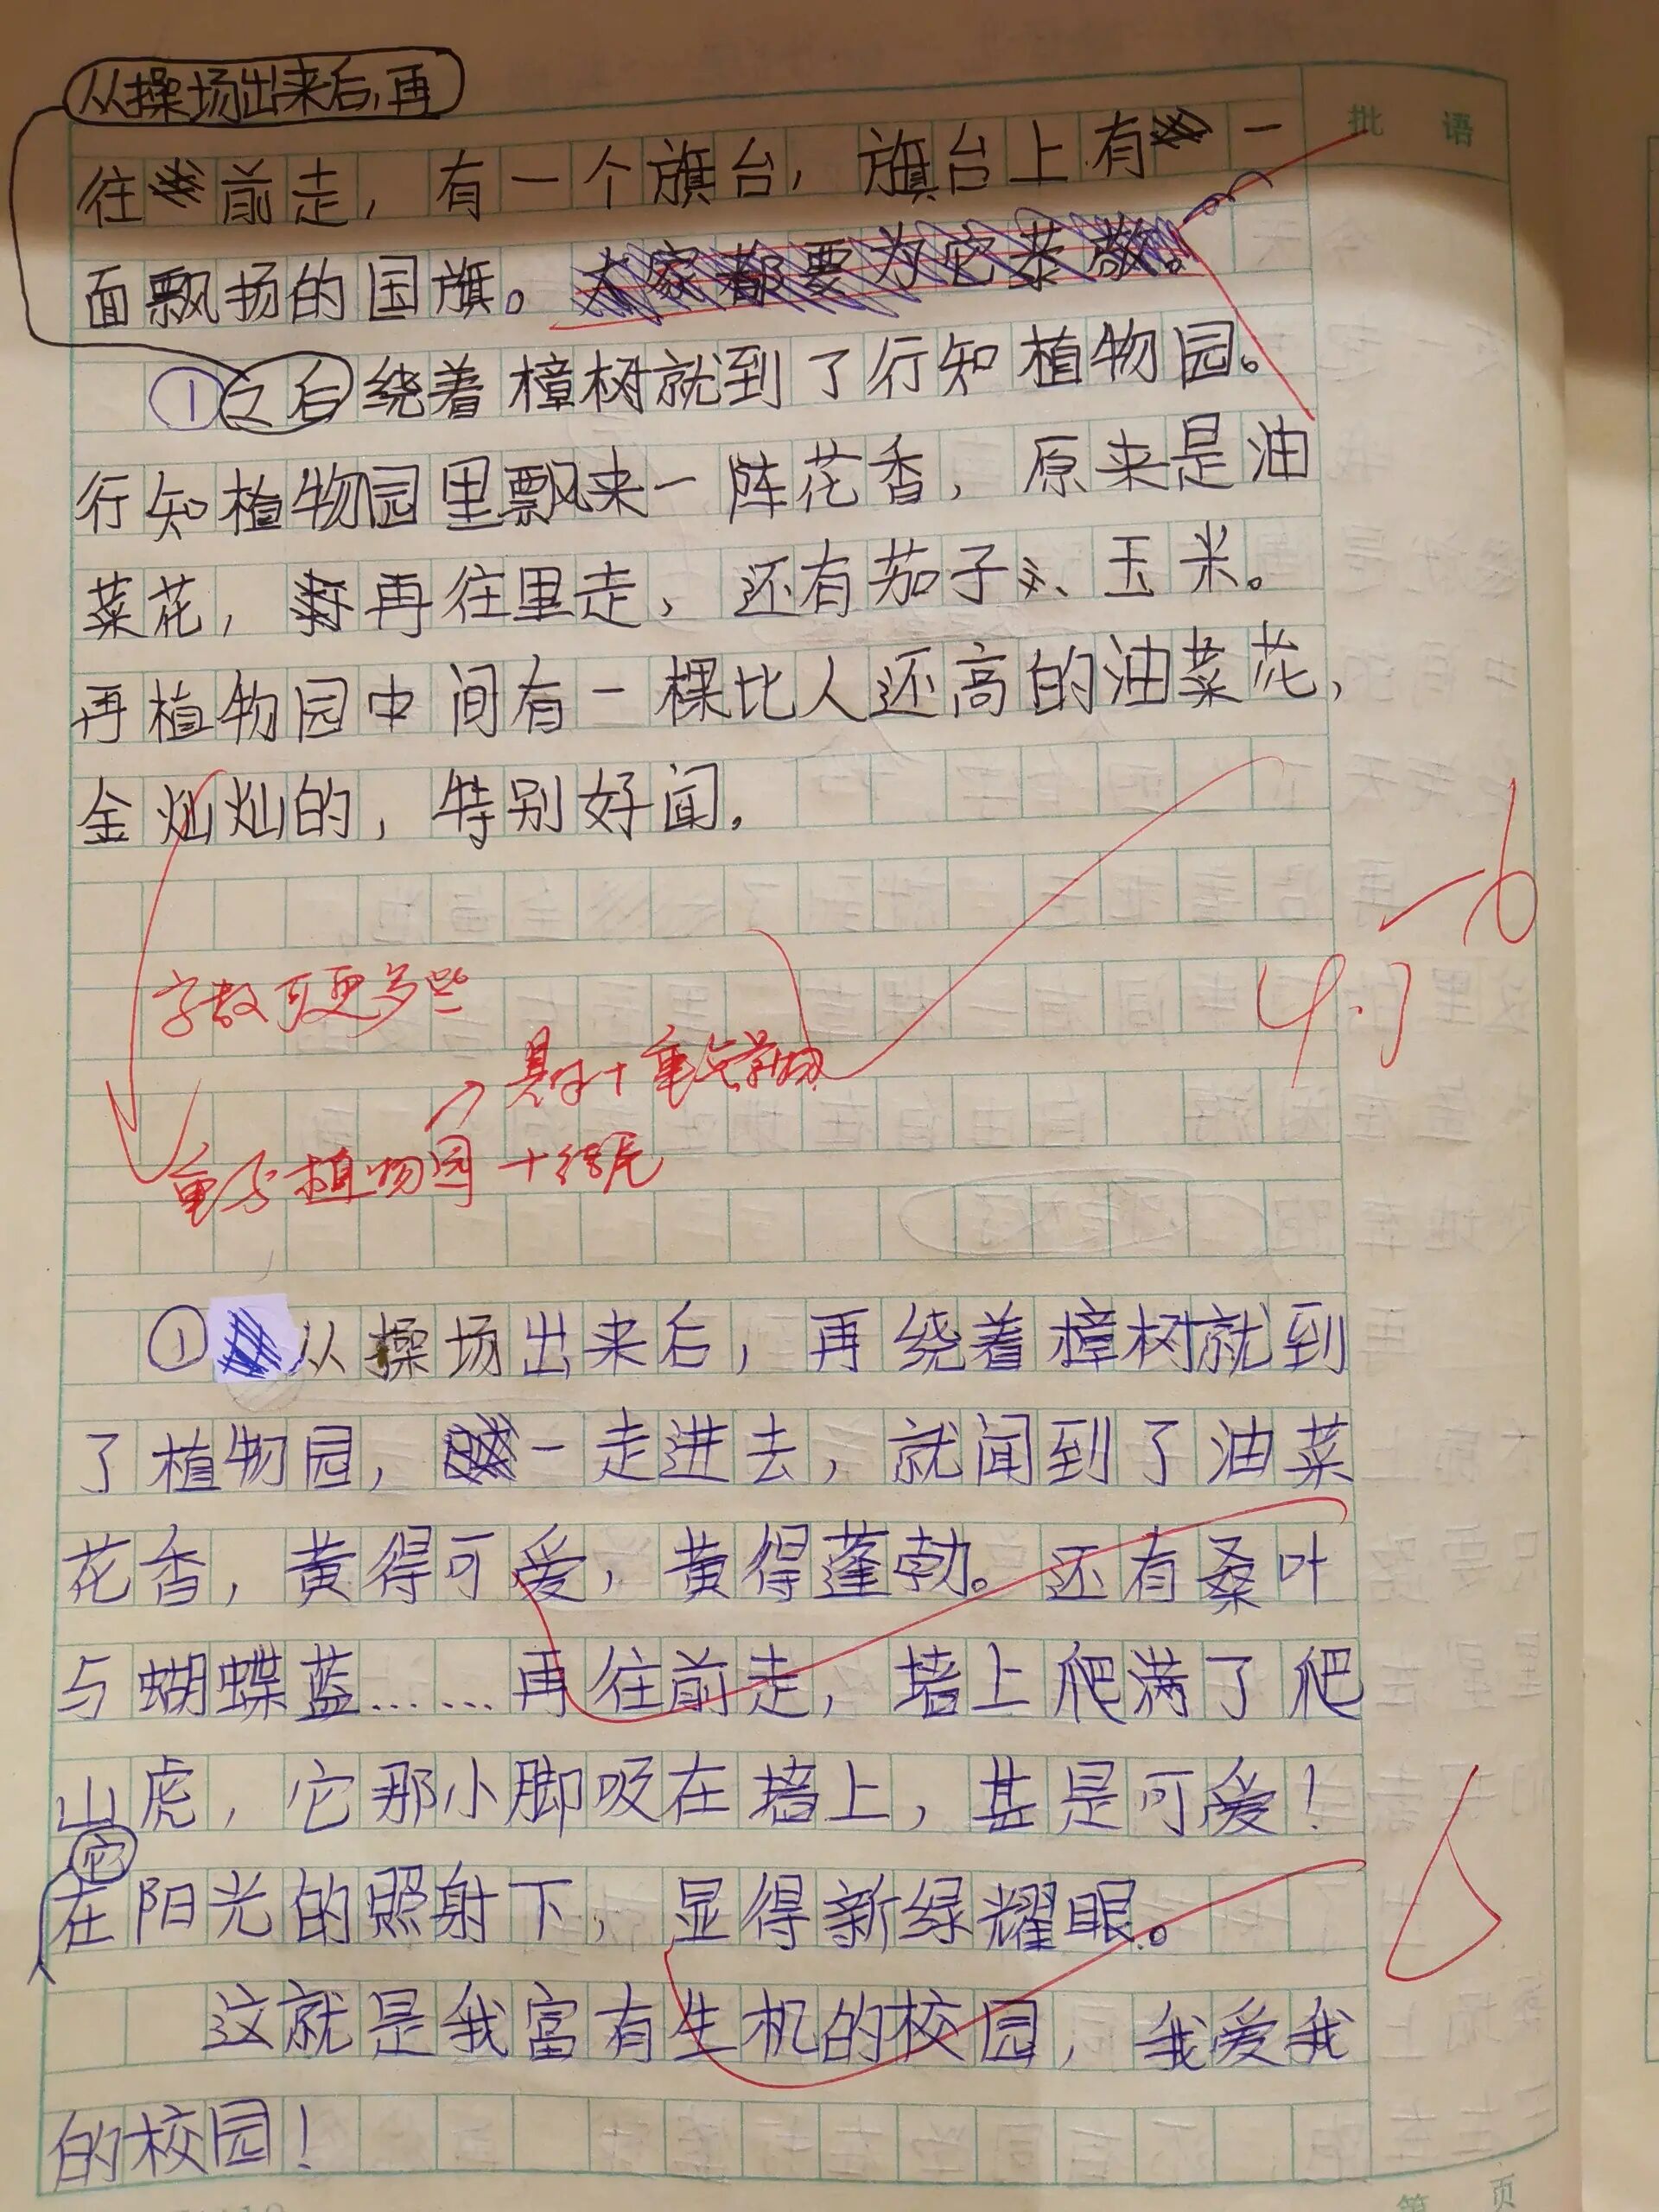 从操场出来后,再
批 语
往前走，有一个旗台，旗台上有一
面飘扬的国旗。大家都要为它恭敬。
①之后绕着樟树就到了行知植物园。
行知植物园里飘来一阵花香，原来是油
菜花，再往里走，还有茄子、玉米。
再植物园中间有一棵比人还高的油菜花，
金灿灿的，特别好闻。
字数可更多些
具体+重点景物
4.7
重写植物园+结尾
①从操场出来后，再绕着樟树就到
了植物园，一走进去，就闻到了油菜
花香，黄得可爱，黄得蓬勃。还有桑叶
与蝴蝶蓝……再往前走，墙上爬满了爬
山虎，它那小脚吸在墙上，甚是可爱！
它
在阳光的照射下，显得新绿耀眼。
这就是我富有生机的校园，我爱我
的校园！
第 页